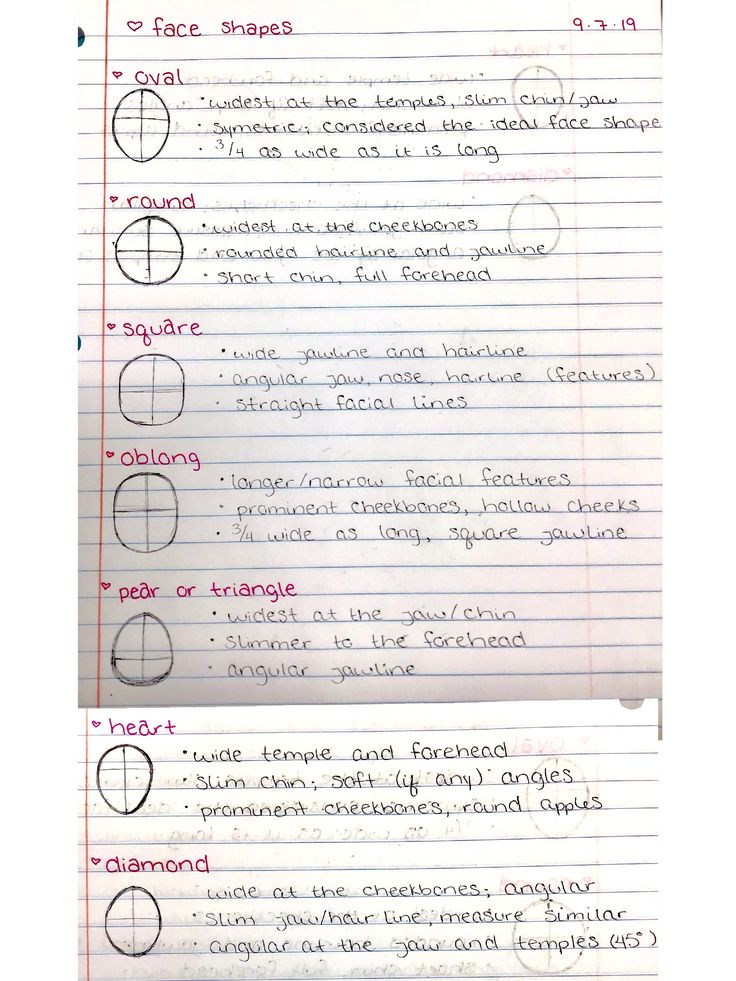 ♡ face shapes 9.7.19
♡ oval
• widest at the temples, slim chin/jaw
• symetric; considered the ideal face shape
• 3/4 as wide as it is long
♡ round
• widest at the cheekbones
• rounded hairline and jawline
• short chin, full forehead
♡ square
• wide jawline and hairline
• angular jaw, nose, hairline (features)
• straight facial lines
♡ oblong
• longer/narrow facial features
• prominent cheekbones, hollow cheeks
• 3/4 wide as long, square jawline
♡ pear or triangle
• widest at the jaw/chin
• slimmer to the forehead
• angular jawline
♡ heart
• wide temple and forehead
• slim chin; soft (if any) angles
• prominent cheekbones, round apples
♡ diamond
wide at the cheekbones; angular
• slim jaw/hair line, measure similar
• angular at the jaw and temples (45°)